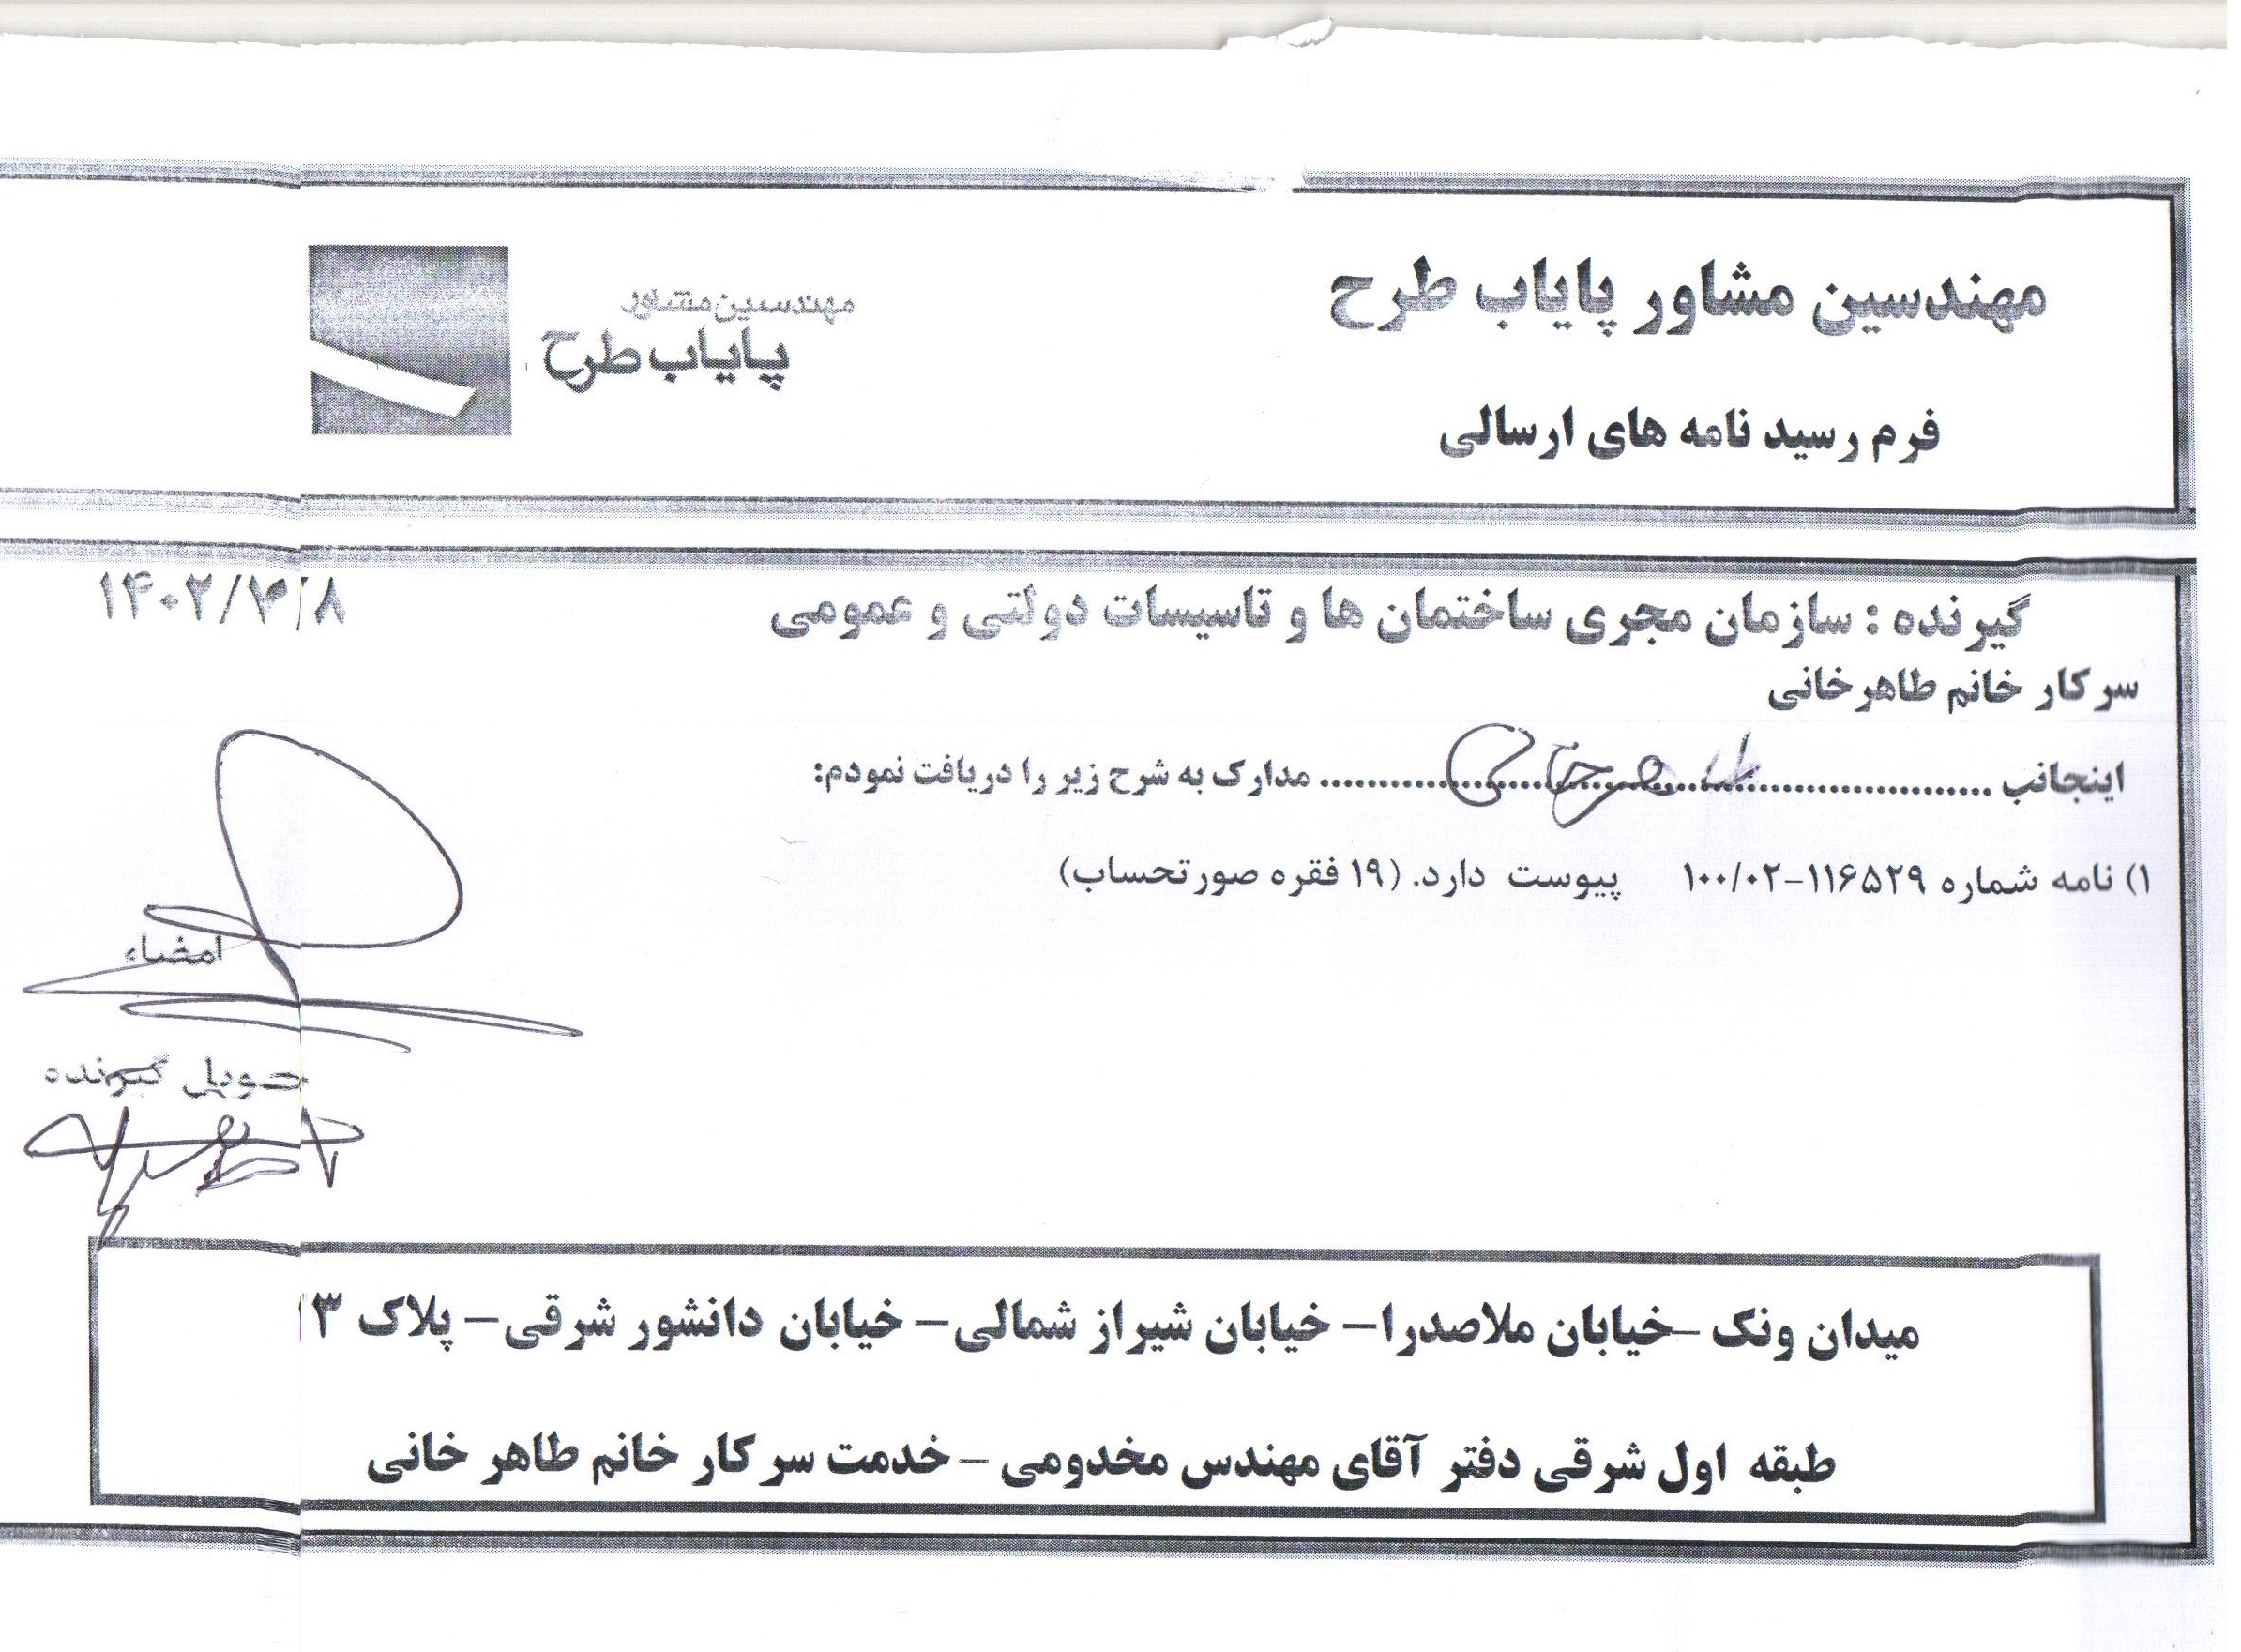 مهندسین مشاور پایاب طرح
فرم رسید نامه های ارسالی
مهندسین مشاور
پایاب طرح
گیرنده : سازمان مجری ساختمان ها و تاسیسات دولتی و عمومی
۱۴۰۲/ /۸
سرکار خانم طاهرخانی
اینجانب .......... طاهرخانی .......... مدارک به شرح زیر را دریافت نمودم:
۱) نامه شماره ۱۱۶۵۲۹-۱۰۰/۰۲ پیوست دارد. (۱۹ فقره صورتحساب)
امضاء
حویل گیرنده
میدان ونک –خیابان ملاصدرا– خیابان شیراز شمالی– خیابان دانشور شرقی– پلاک
طبقه اول شرقی دفتر آقای مهندس مخدومی – خدمت سرکار خانم طاهر خانی